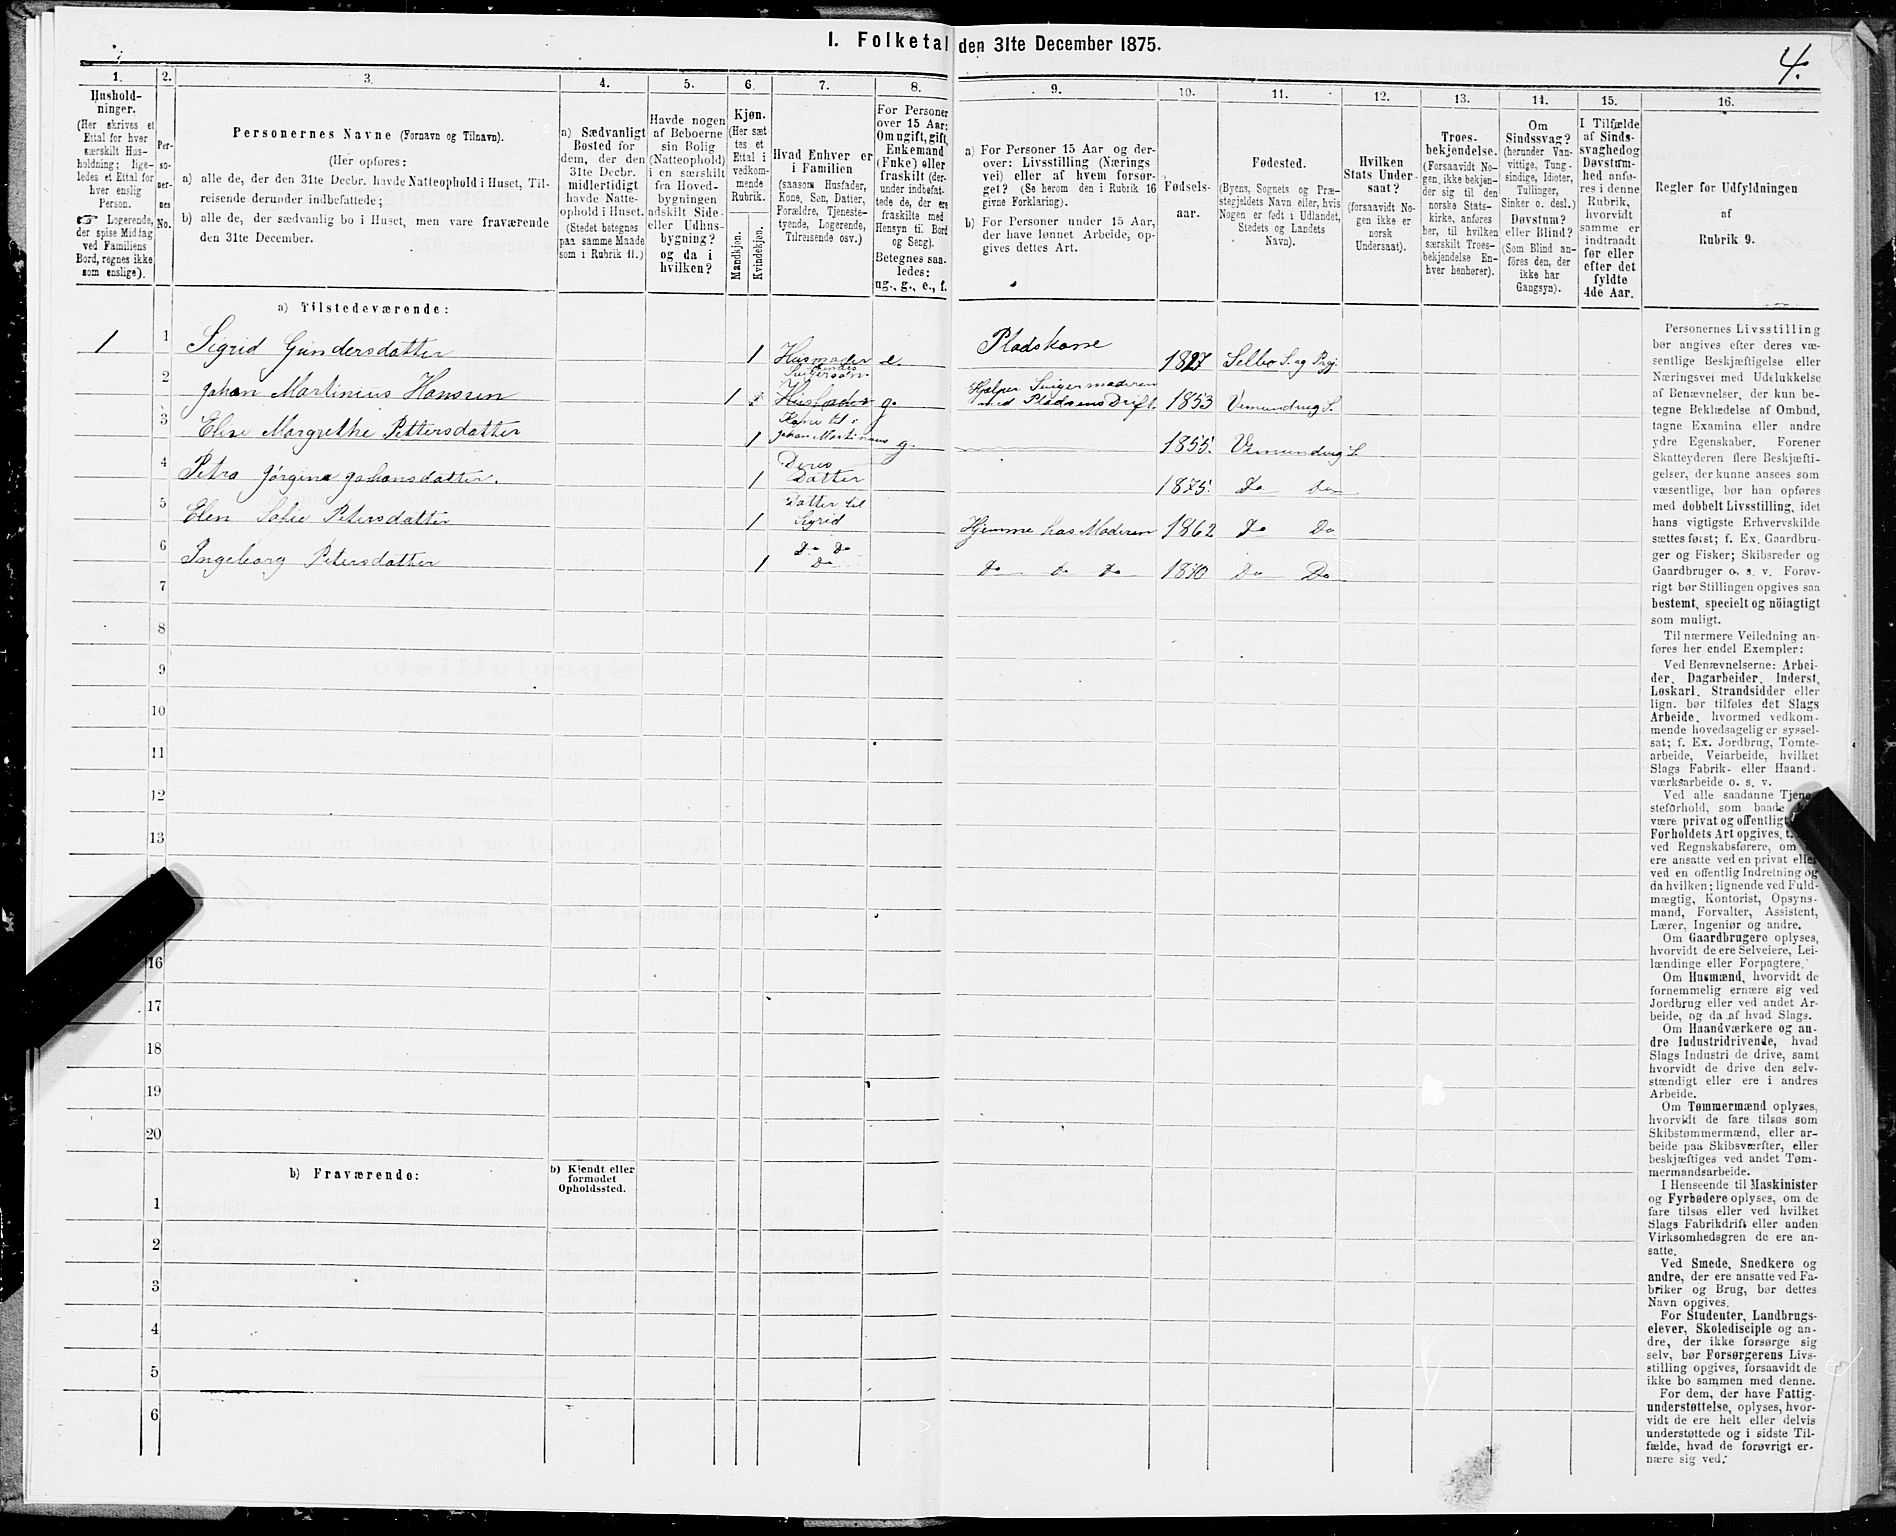 I. Folketal den 31te December 1875.
4.
1.
Hushold-
ninger.
(Her skrives et
Ettal for hver
særskilt Hus-
holdning; lige-
ledes et Ettal for
hver enslig
Person.
☞ Logerende,
der spise Middag
ved Familiens
Bord, regnes ikke
som enslige).
2.
Per-
so-
ner-
nes
No.
3.
Personernes Navne (Fornavn og Tilnavn).
(Her opføres:
a) alle de, der den 31te Decbr. havde Natteophold i Huset, Til-
reisende derunder indbefattede;
b) alle de, der sædvanlig bo i Huset, men vare fraværende
den 31te December.
4.
a) Sædvanligt
Bosted for
dem, der den
31te Decbr.
midlertidigt
havde Natte-
ophold i Huset.
(Stedet betegnes
paa samme Maade
som i Rubrik 11.)
5.
Havde nogen
af Beboerne
sin Bolig
(Natteophold)
i en særskilt
fra Hoved-
bygningen
adskilt Side-
eller Udhus-
bygning?
og da i
hvilken?
6.
Kjøn.
(Her sæt
tes et
Ettal i
vedkom-
mende
Rubrik.
Mandkjøn.
Kvindekjøn.
7.
Hvad Enhver er
i Familien
(saasom Husfader,
Kone, Søn, Datter,
Forældre, Tjeneste-
tyende, Logerende,
Tilreisende osv.)
8.
For Personer
over 15 Aar:
Om ugift, gift,
Enkemand
(Enke) eller
fraskilt (der-
under indbefat-
tede de, der ere
fraskilte med
Hensyn til Bord
og Seng).
Betegnes saa-
ledes:
ug., g., e., f.
9.
a) For Personer 15 Aar og der-
over: Livsstilling (Nærings
vei) eller af hvem forsør-
get? (Se herom den i Rubrik 16
givne Forklaring).
b) For Personer under 15 Aar,
der have lønnet Arbeide, op-
gives dettes Art.
10.
Fødsels-
aar.
11.
Fødested.
(Byens, Sognets og Præ-
stegjeldets Navn eller, hvis
Nogen er født i Udlandet,
Stedets og Landets
Navn).
12.
Hvilken
Stats Under-
saat?
(forsaavidt No-
gen ikke er
norsk
Undersaat).
13.
Troes-
bekjendelse.
(Forsaavidt No-
gen, ikke bekjen-
der sig til den
norske Stats-
kirke, anføres
her, til hvilken
særskilt Troes-
bekjendelse En-
hver henhører).
14.
Om
Sindssvag?
(herunder Van-
vittige, Tung-
sindige, Idioter,
Tullinger,
Sinker o. desl.)
Døvstum?
eller Blind?
(Som Blind an-
føres den, der
ikke har
Gangsyn).
15.
I Tilfælde
af Sinds-
svaghed og
Døvstum-
hed anfø-
res i denne
Rubrik,
hvorvidt
samme er
indtraadt
før eller
efter det
fyldte
4de Aar.
16.
Regler for Udfyldningen
af
Rubrik 9.
a) Tilstedeværende:
1 1 Sigrid Gundersdatter 1 Husmoder e. Pladskone 1827 Selbo S. og Prgj.
2 Johan Martinius Hansen 1 Husfader Sviger søn. g. Hjælper Svigermoderen med Pladsens Drift. 1853 Vemundvig S.
3 Elise Margrethe Pettersdatter 1 Kone til Johan Martinius g. 1855. Vemundvig S
4 Petra Jørgine Johansdatter. 1 Deres Datter 1875. Do Do
5 Elen Sofie Petersdatter 1 Datter til Sigrid Hjemme hos Moderen 1862 Do Do
6 Ingeborg Petersdatter 1 Do Do Do Do Do Do 1870 Do Do
7
8
9
10
11
12
13
16
17
18
19
20
b) Fraværende:
b) Kjendt eller
formodet
Opholdssted.
1
2
3
4
5
6
Personernes Livsstilling
bør angives efter deres væ-
sentlige Beskjæftigelse eller
Næringsvei med Udelukkelse
af Benævnelser, der kun be-
tegne Beklædelse af Ombud,
tagne Examina eller andre
ydre Egenskaber. Forener
Skatteyderen flere Beskjæfti-
gelser, der kunne ansees som
væsentlige, bør han opføres
med dobbelt Livsstilling, idet
hans vigtigste Erhvervskilde
sættes først; f. Ex. Gaardbru-
ger og Fisker; Skibsreder og
Gaardbruger o. s. v. Forøv-
rigt bør Stillingen opgives saa
bestemt, specielt og nöiagtigt
som muligt.
Til nærmere Veiledning an-
føres her endel Exempler:
Ved Benævnelserne: Arbei-
der, Dagarbeider, Inderst,
Løskarl, Strandsidder eller
lign. bør tilføies det Slags
Arbeide, hvormed vedkom-
mende hovedsagelig er syssel-
sat; f. Ex. Jordbrug, Tomte-
arbeide, Veiarbeide, hvilket
Slags Fabrik- eller Haand-
værksarbeide o. s. v.
Ved alle saadanne Tjene-
steforhold, som baade
være privat og offentlig
Forholdets Art opgives,
ved Regnskabsførere, om
ere ansatte ved en privat eller
ved en offentlig Indretning og
da hvilken; lignende ved Fuld-
mægtig, Kontorist, Opsyns-
mand, Forvalter, Assistent,
Lærer, Ingeniør og andre.
Om Gaardbrugere oplyses,
hvorvidt de ere Selveiere, Lei-
lændinge eller Forpagtere.
Om Husmænd, hvorvidt de
fornemmelig ernære sig ved
Jordbrug eller ved andet Ar-
beide, og da af hvad Slags.
Om Haandværkere og an-
dre Industridrivende, hvad
Slags Industri de drive, samt
hvorvidt de drive den selv-
stændigt eller ere i andres
Arbeide.
Om Tømmermænd oplyses,
hvorvidt de fare tilsøs som
Skibstømmermænd, eller ar-
beide paa Skibsværfter, eller
beskjæftiges ved andet Tøm-
mermandsarbeide.
I Henseende til Maskinister
og Fyrbødere oplyses, om de
fare tilsøs eller ved hvilket
Slags Fabrikdrift eller anden
Virksomhedsgren de ere an-
satte.
Ved Smede, Snedkere og
andre, der ere ansatte ved Fa-
briker og Brug, bør dettes
Navn opgives.
For Studenter, Landbrugs-
elever, Skoledisciple og an-
dre, der ikke forsørge sig
selv, bør Forsørgerens Livs-
stilling opgives, forsaavidt de
ikke bo sammen med denne.
For dem, der have Fattig-
understøttelse, oplyses, hvor-
vidt de ere helt eller delvis
understøttede og i sidste Til-
fælde, hvad de forøvrigt er-
nære sig ved.